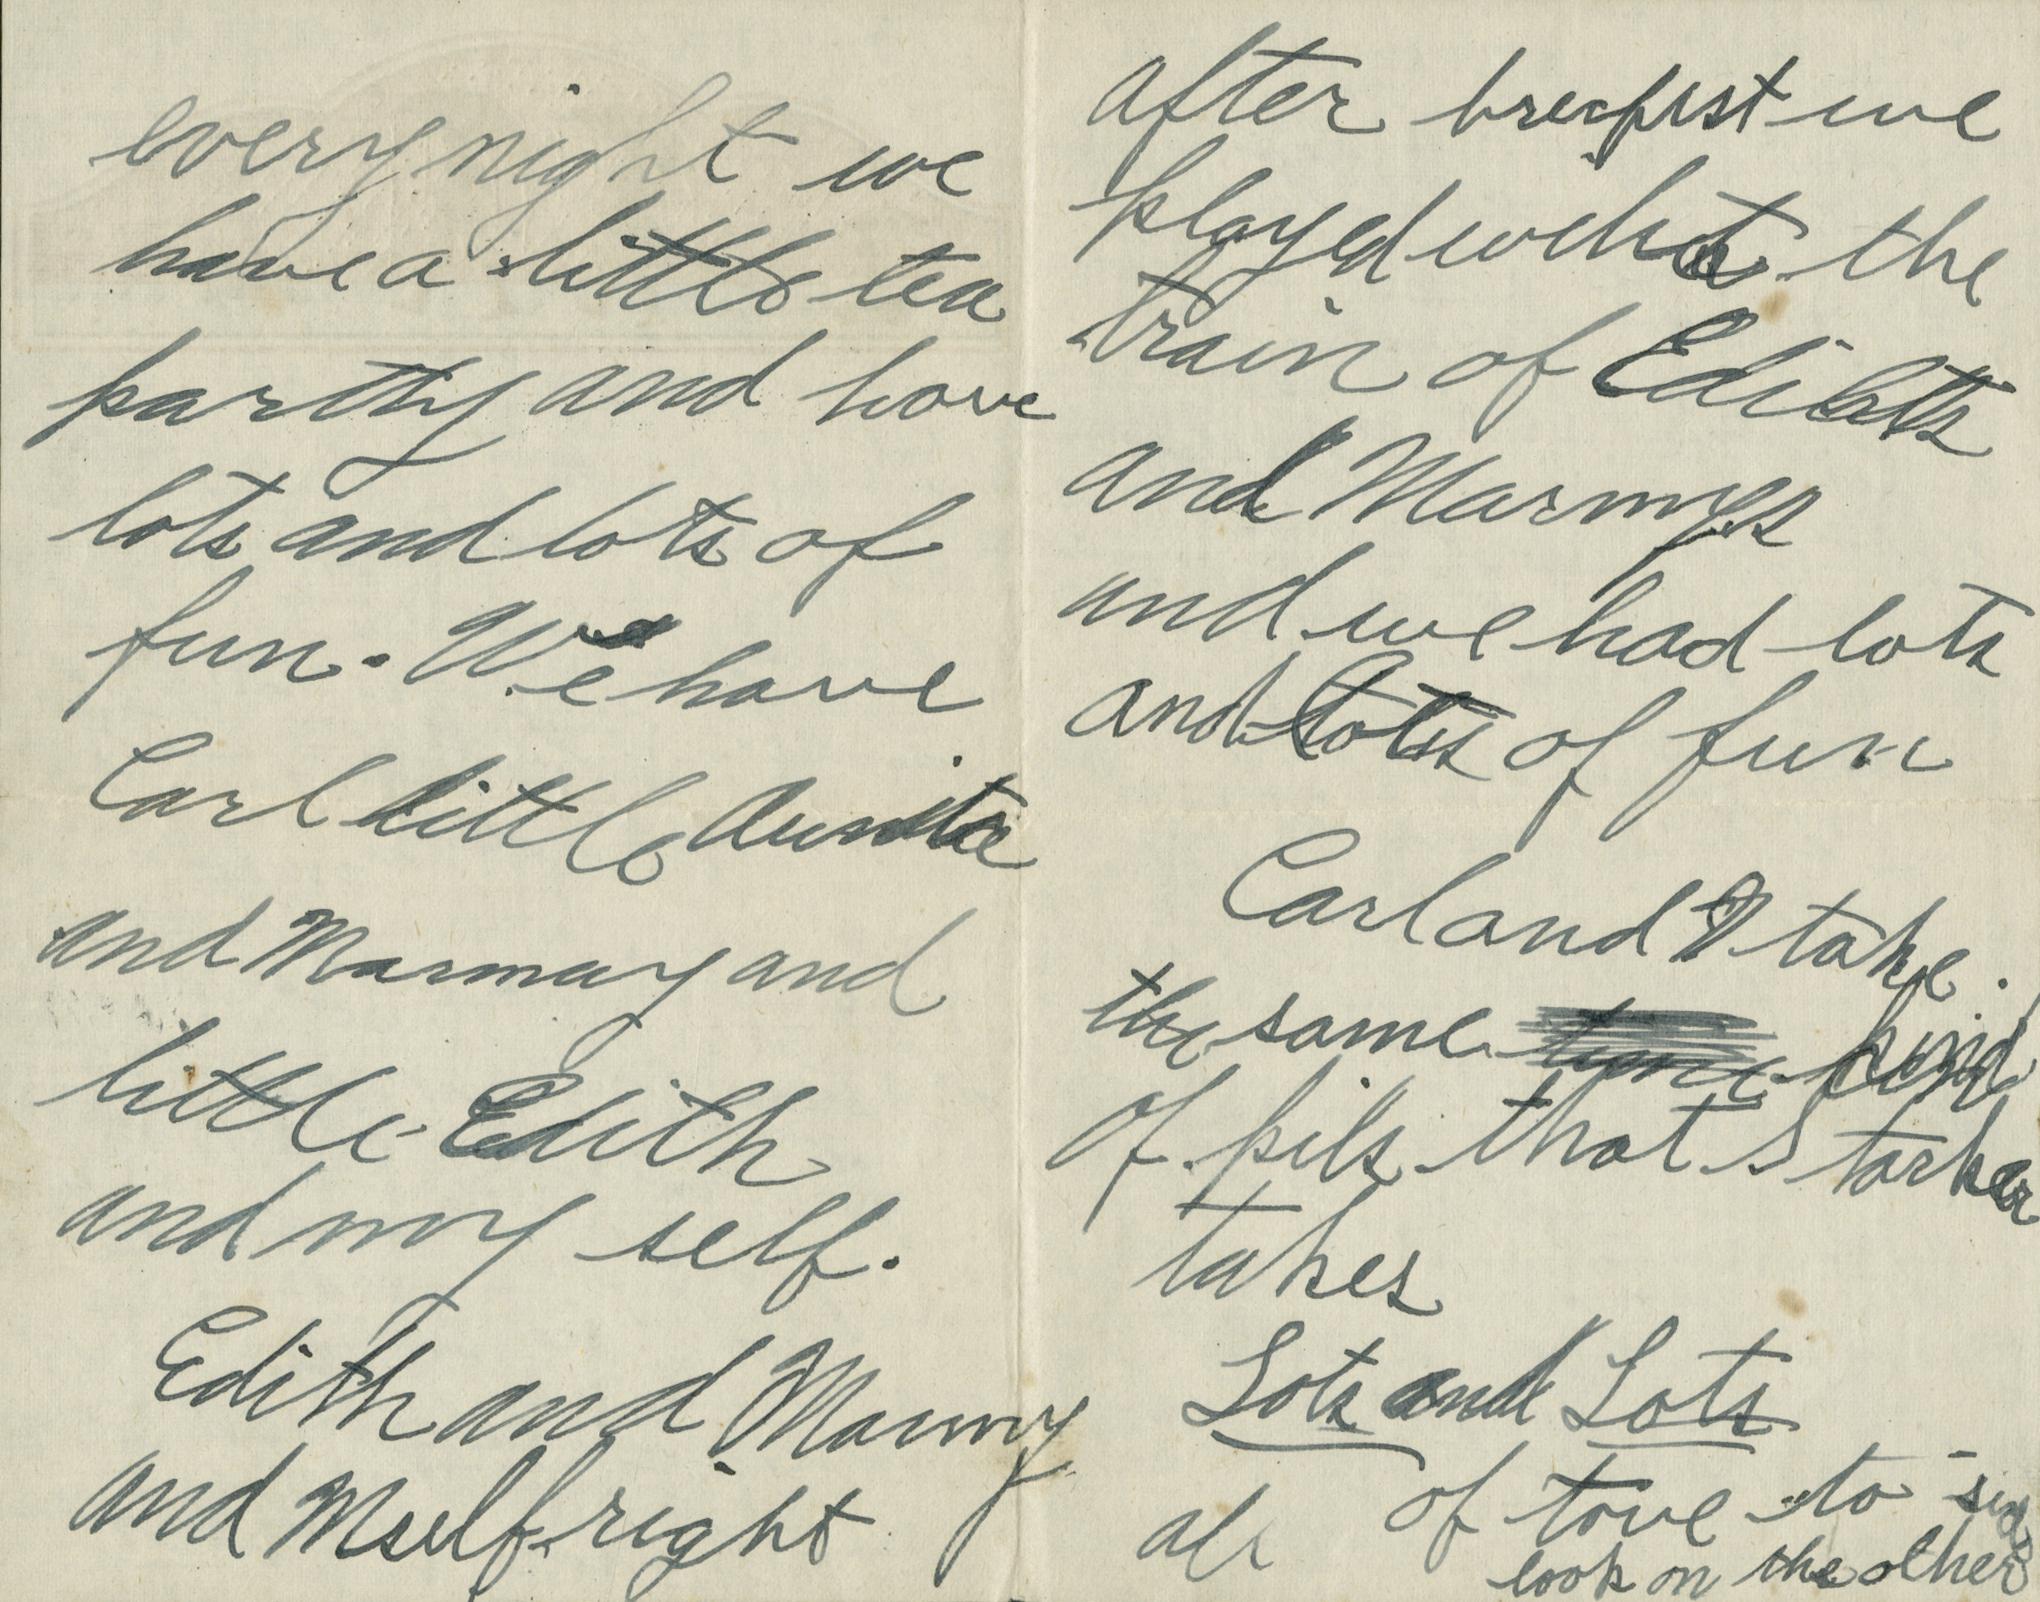 every night we
have a little tea
partty and have
lots and lots of
fun. We have
Carl little Auntie
and Marmay and
little Edith
and my self.
Edith and Marmy
and Mself right
after brecfist we
played with the
train of Ediths
and Marmys
and we had lots
and Lots of fun
Carl and I take.
the same time kind
of pils that Starker
takes
Lots and Lots
of love to
all
look on the other
side